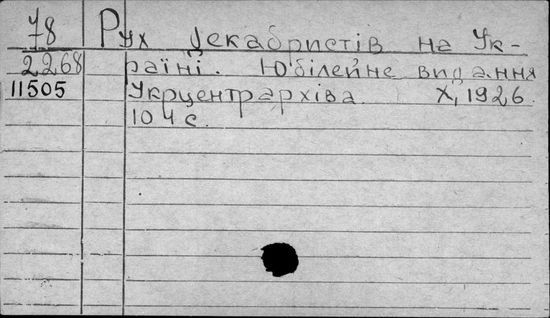 78 Рух декабристів на Ук-
2268 раїні. Ювілейне видання
11505 Укрцентрархіва. Х, 1926.
104 с.